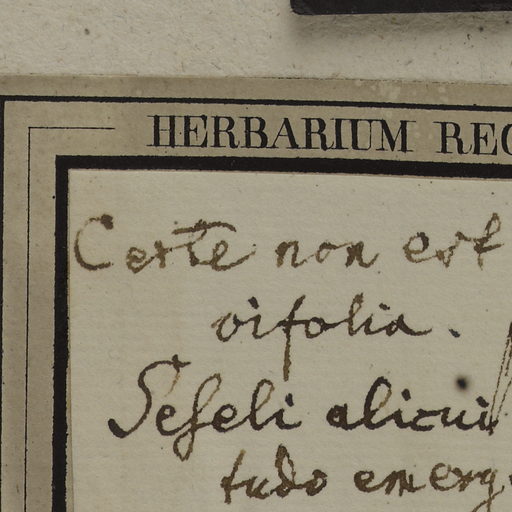 HERBARIUM REG
Certe non est
vifolia.
Seseli alicui
tudo emerg